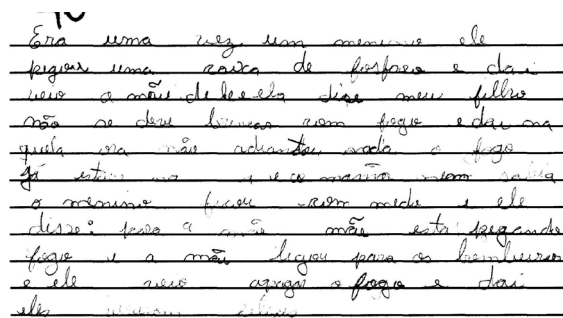 Era uma vez um menino ele
pegou uma caixa de fosforo e dai
veio a mãe dele e ela dise meu filho
não se deve brincar com fogo e dai na
quela ora não adiantou nada o fogo
já estava e a mesmo nem sabia
o menino ficou com medo e ele
disse: para a mãe mãe esta pegando
fogo e a mãe ligou para os bombeiros
e ele veio apagar o fogo e dai
eles